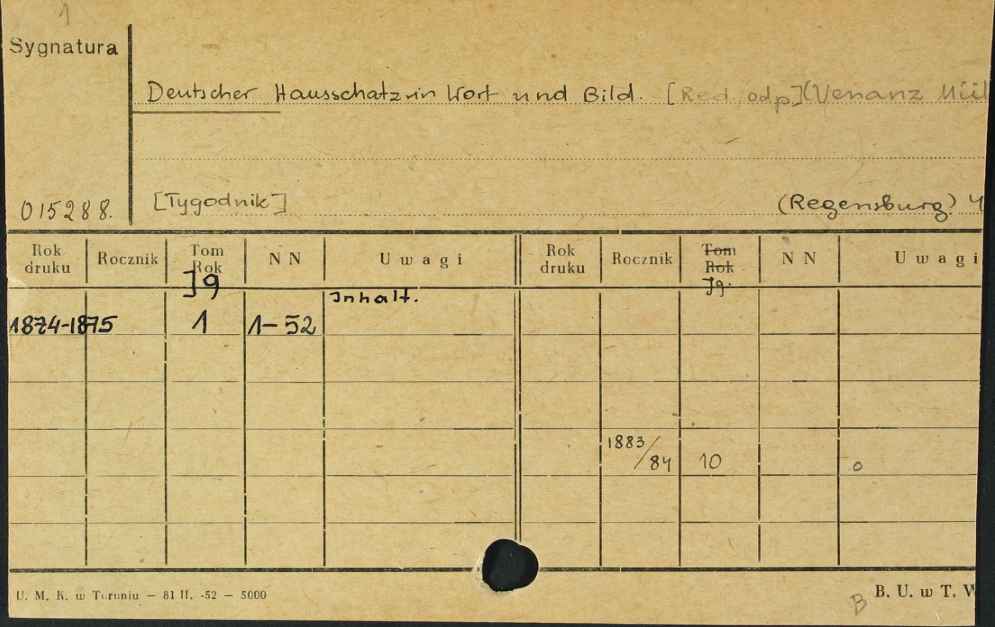 1
Sygnatura
Deutscher Hausschatz in Wort und Bild. [Red. odp] (Venanz Mül
015288.
[Tygodnik]
(Regensburg) 4
Rok druku Rocznik Tom Rok Jg NN Uwagi Rok druku Rocznik Tom Rok Jg. NN Uwagi
Inhalt.
1874-1875 1 1-52
1883/84 10 o
U. M. K. w Toruniu — 81 II. -52 — 5000
B. U. w T. W
B